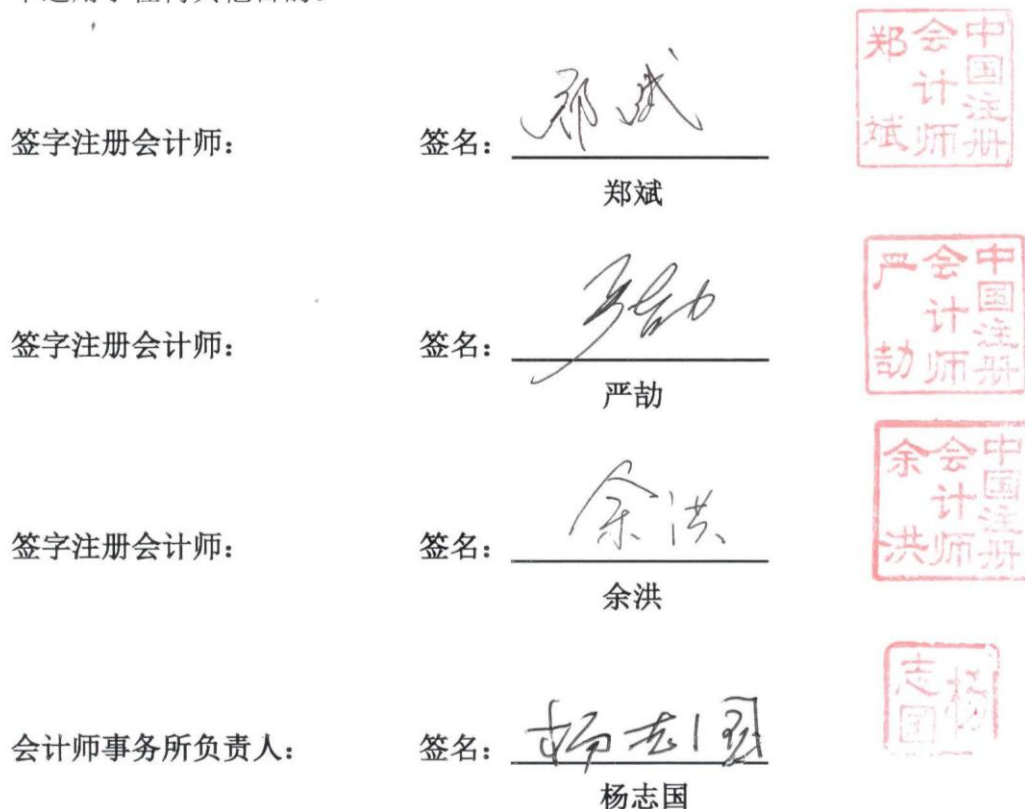 签字注册会计师： 签名：郑斌
郑斌
中国注册会计师
郑斌
签字注册会计师： 签名：严劼
严劼
中国注册会计师
严劼
签字注册会计师： 签名：余洪
余洪
中国注册会计师
余洪
会计师事务所负责人： 签名：杨志国
杨志国
杨志国